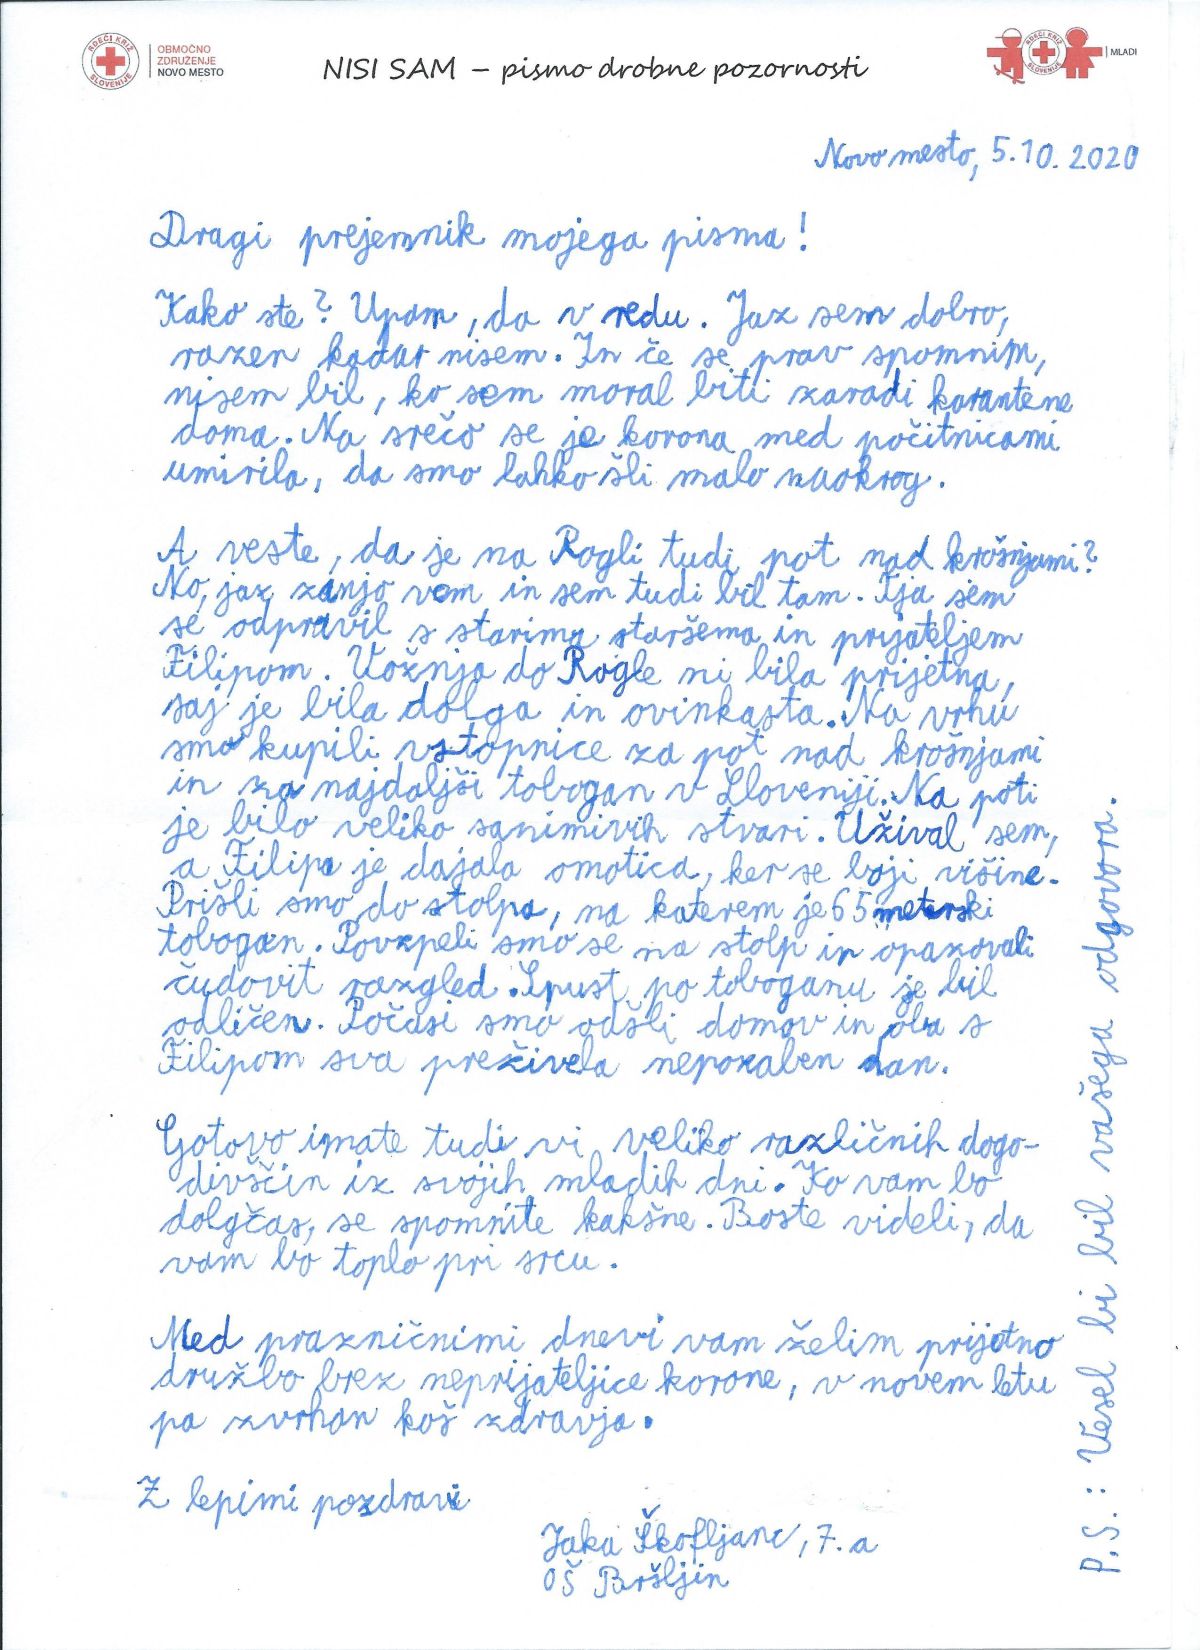 RDEČI KRIŽ SLOVENIJE
OBMOČNO
ZDRUŽENJE
NOVO MESTO
NISI SAM – pismo drobne pozornosti
RDEČI KRIŽ SLOVENIJE
MLADI
Novo mesto, 5.10.2020
Dragi prejemnik mojega pisma!
Kako ste? Upam, da v redu. Jaz sem dobro,
razen kadar nisem. In če se prav spomnim,
nisem bil, ko sem moral biti zaradi karantene
doma. Na srečo se je korona med počitnicami
umirila, da smo lahko šli malo naokrog.
A veste, da je na Rogli tudi pot nad krošnjami?
No, jaz zanjo vem in sem tudi bil tam. Tja sem
se odpravil s starima staršema in prijateljem
Filipom. Vožnja do Rogle ni bila prijetna,
saj je bila dolga in ovinkasta. Na vrhu
smo kupili vstopnice za pot nad krošnjami
in za najdaljši tobogan v Sloveniji. Na poti
je bilo veliko zanimivih stvari. Užival sem,
a Filipa je dajala omotica, ker se boji višine.
Prišli smo do stolpa, na katerem je 65 meterski
tobogan. Povzpeli smo se na stolp in opazovali
čudovit razgled. Spust po toboganu je bil
odličen. Počasi smo odšli domov in oba s
Filipom sva preživela nepozaben dan.
Gotovo imate tudi vi veliko različnih dogo-
divščin iz svojih mladih dni. Ko vam bo
dolgčas, se spomnite kakšne. Boste videli, da
vam bo toplo pri srcu.
Med prazničnimi dnevi vam želim prijetno
družbo brez neprijateljice korone, v novem letu
pa zvrhan koš zdravja.
Z lepimi pozdravi
Jaka Škofljanc, 7.a
OŠ Bršljin
P.S.: Vesel bi bil vašega odgovora.